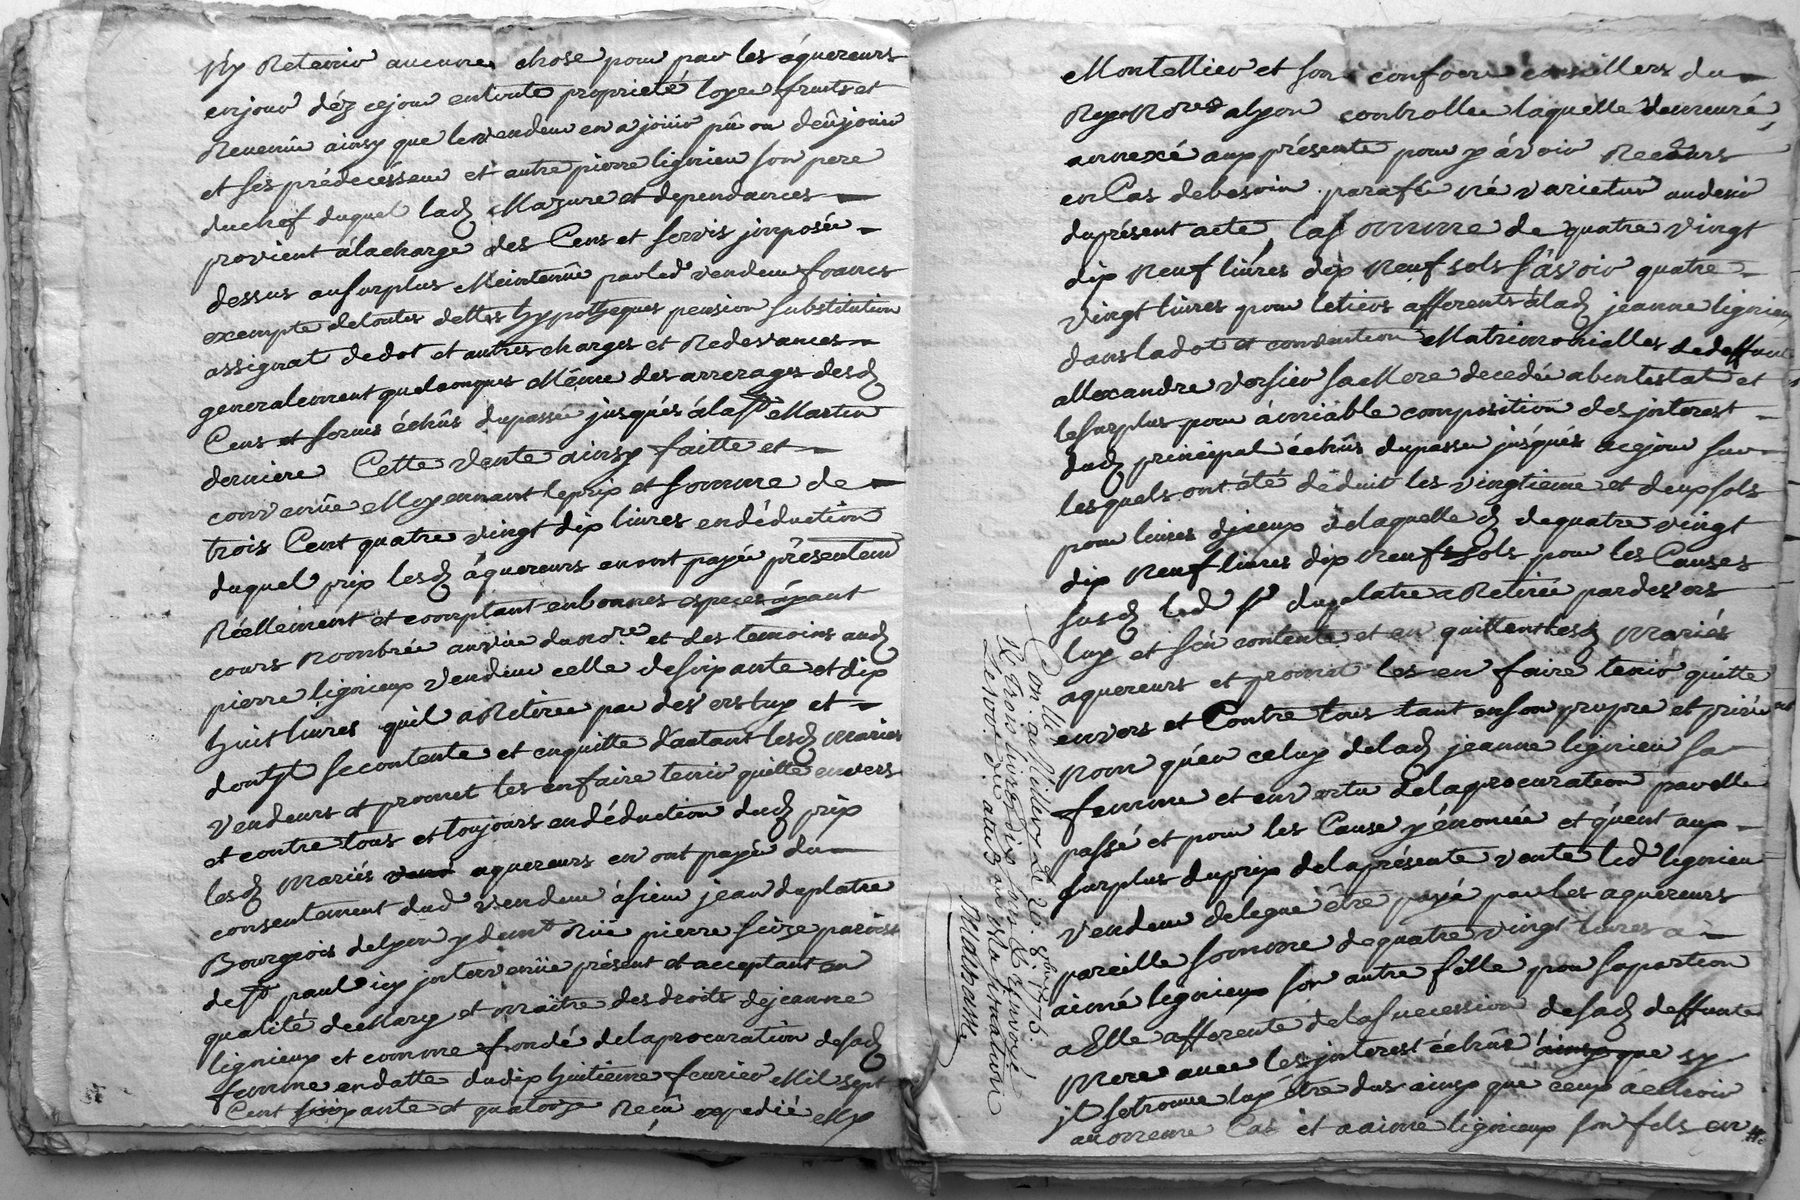 Ny Retenir aucune chose pour par les áquereurs
enjouir déz cejour entoute proprieté loyer fruits et
Revenûe ainsy que levendeur en a joüir pû ou deû jouir
et ses prédecesseur et autre pierre lignieu son pere
duchef duquel lad Mazure et dependances
provient àlacharge des Cens et servis jmposée
dessus ausurplus Meintenûe parled vendeur franés
exempte detoutes dettes hypotheques pension substitution
assignat dedot et autres charges et Redevances
generalement quelconques Même des arrerages desd
Cens et servis échûs dupassé jusqués álast Martin
derniere Cette vente ainsy faitte et
convenûe Moyennant leprix et somme de
trois Cent quatre vingt dix livres endéduction
duquel prix lesd áquereurs enont payé présentem
Réellement et comptant enbonnes especes áyant
cours Nombrée auvûe dunore et des temoins aud
pierre lignieux vendeur celle desoixante et dix
huit livres quil aRetirée par devers luy et
dontjl secontente et enquitte d'autant lesd mariés
vendeurs et promet les enfaire tenir quitte envers
et contre tous et toujours endéduction dud prix
lesd mariés aquereurs en ont payé du
consentement dud vendeur ásieur jean duplatre
Bourgeois delyon y demt Rüe pierre scize paroisse
de st paul icy jntervenüe présent et acceptant en
qualité deMary et maitre desdroits dejeanne
lignieux et comme fondé delaprocuration desad
femme endatte dudix huitieme fevrier Mil sept
Cent soixante et quatorze Reçû expedié Me
Montellier et son confrere conseillers du
Roy Nores alyon controllée laquelle demeuré
annexé aux présente pour y ávoir Recours
enCas debesoin parafée né varietur audesir
duprésent acte, lasomme de quatre vingt
dix Neuf livres dix Neuf sols sávoir quatre
vingt livres pour letiers afferents álad jeanne lignieu
dans ladot et convention Matrimonielles dedeffunte
allexandre versieu saMere decedée abintestat et
lesurplus pour ámiable composition des jnterest
dud principal échûs dupassé jusqués acejour sur
lesquels ont été déduit les vingtieme et deux sols
pour livres djceux delaquelle d dequatre vingt
dix Neuf livres dix Neuf sols pour les Causes
susd led sr duplatre aRetirée pardevers
luy et sén contente et en quittent lesd mariés
aquereurs et promet les en faire tenir quitte
envers et Contre tous tant enson propre et privé
Nom qu'en celuy delad jeanne lignieu sa
femme et envertu delaprocuration parelle
passé et pour les Cause y énoncée et quent aux
surplus duprix delaprésente vente led lignieu
vendeur délegue être payé par les aquereurs
pareille somme dequatre vingt livres a
aimé lignieux son autre fille pour saportion
aElle afferente delasuccession desad deffunte
Mere avec les jnterest échûs sy
jl setrouve luy être dus ainsy que ceux áechoir
aumeme Cas et aaimé lignieux son fils en
Con. llé
a st illier Le 26. 8bre 1775.
R. trois livres dix sols Et renvoyé
Le
Mathame